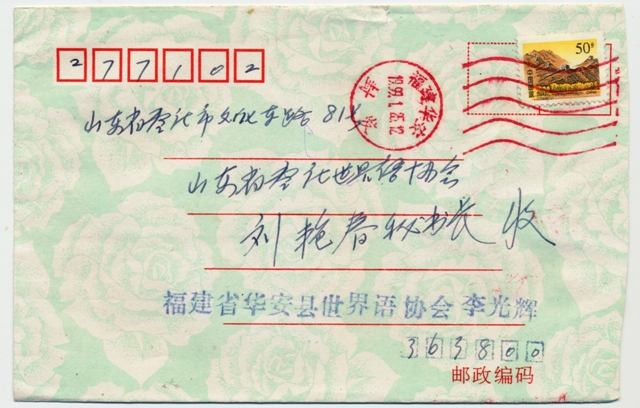 277102
50分
福建华安
1999.1.25.12
山东省枣庄市文化东路81号
山东省枣庄世界语协会
刘艳春秘书长 收
福建省华安县世界语协会 李光辉
363800
邮政编码